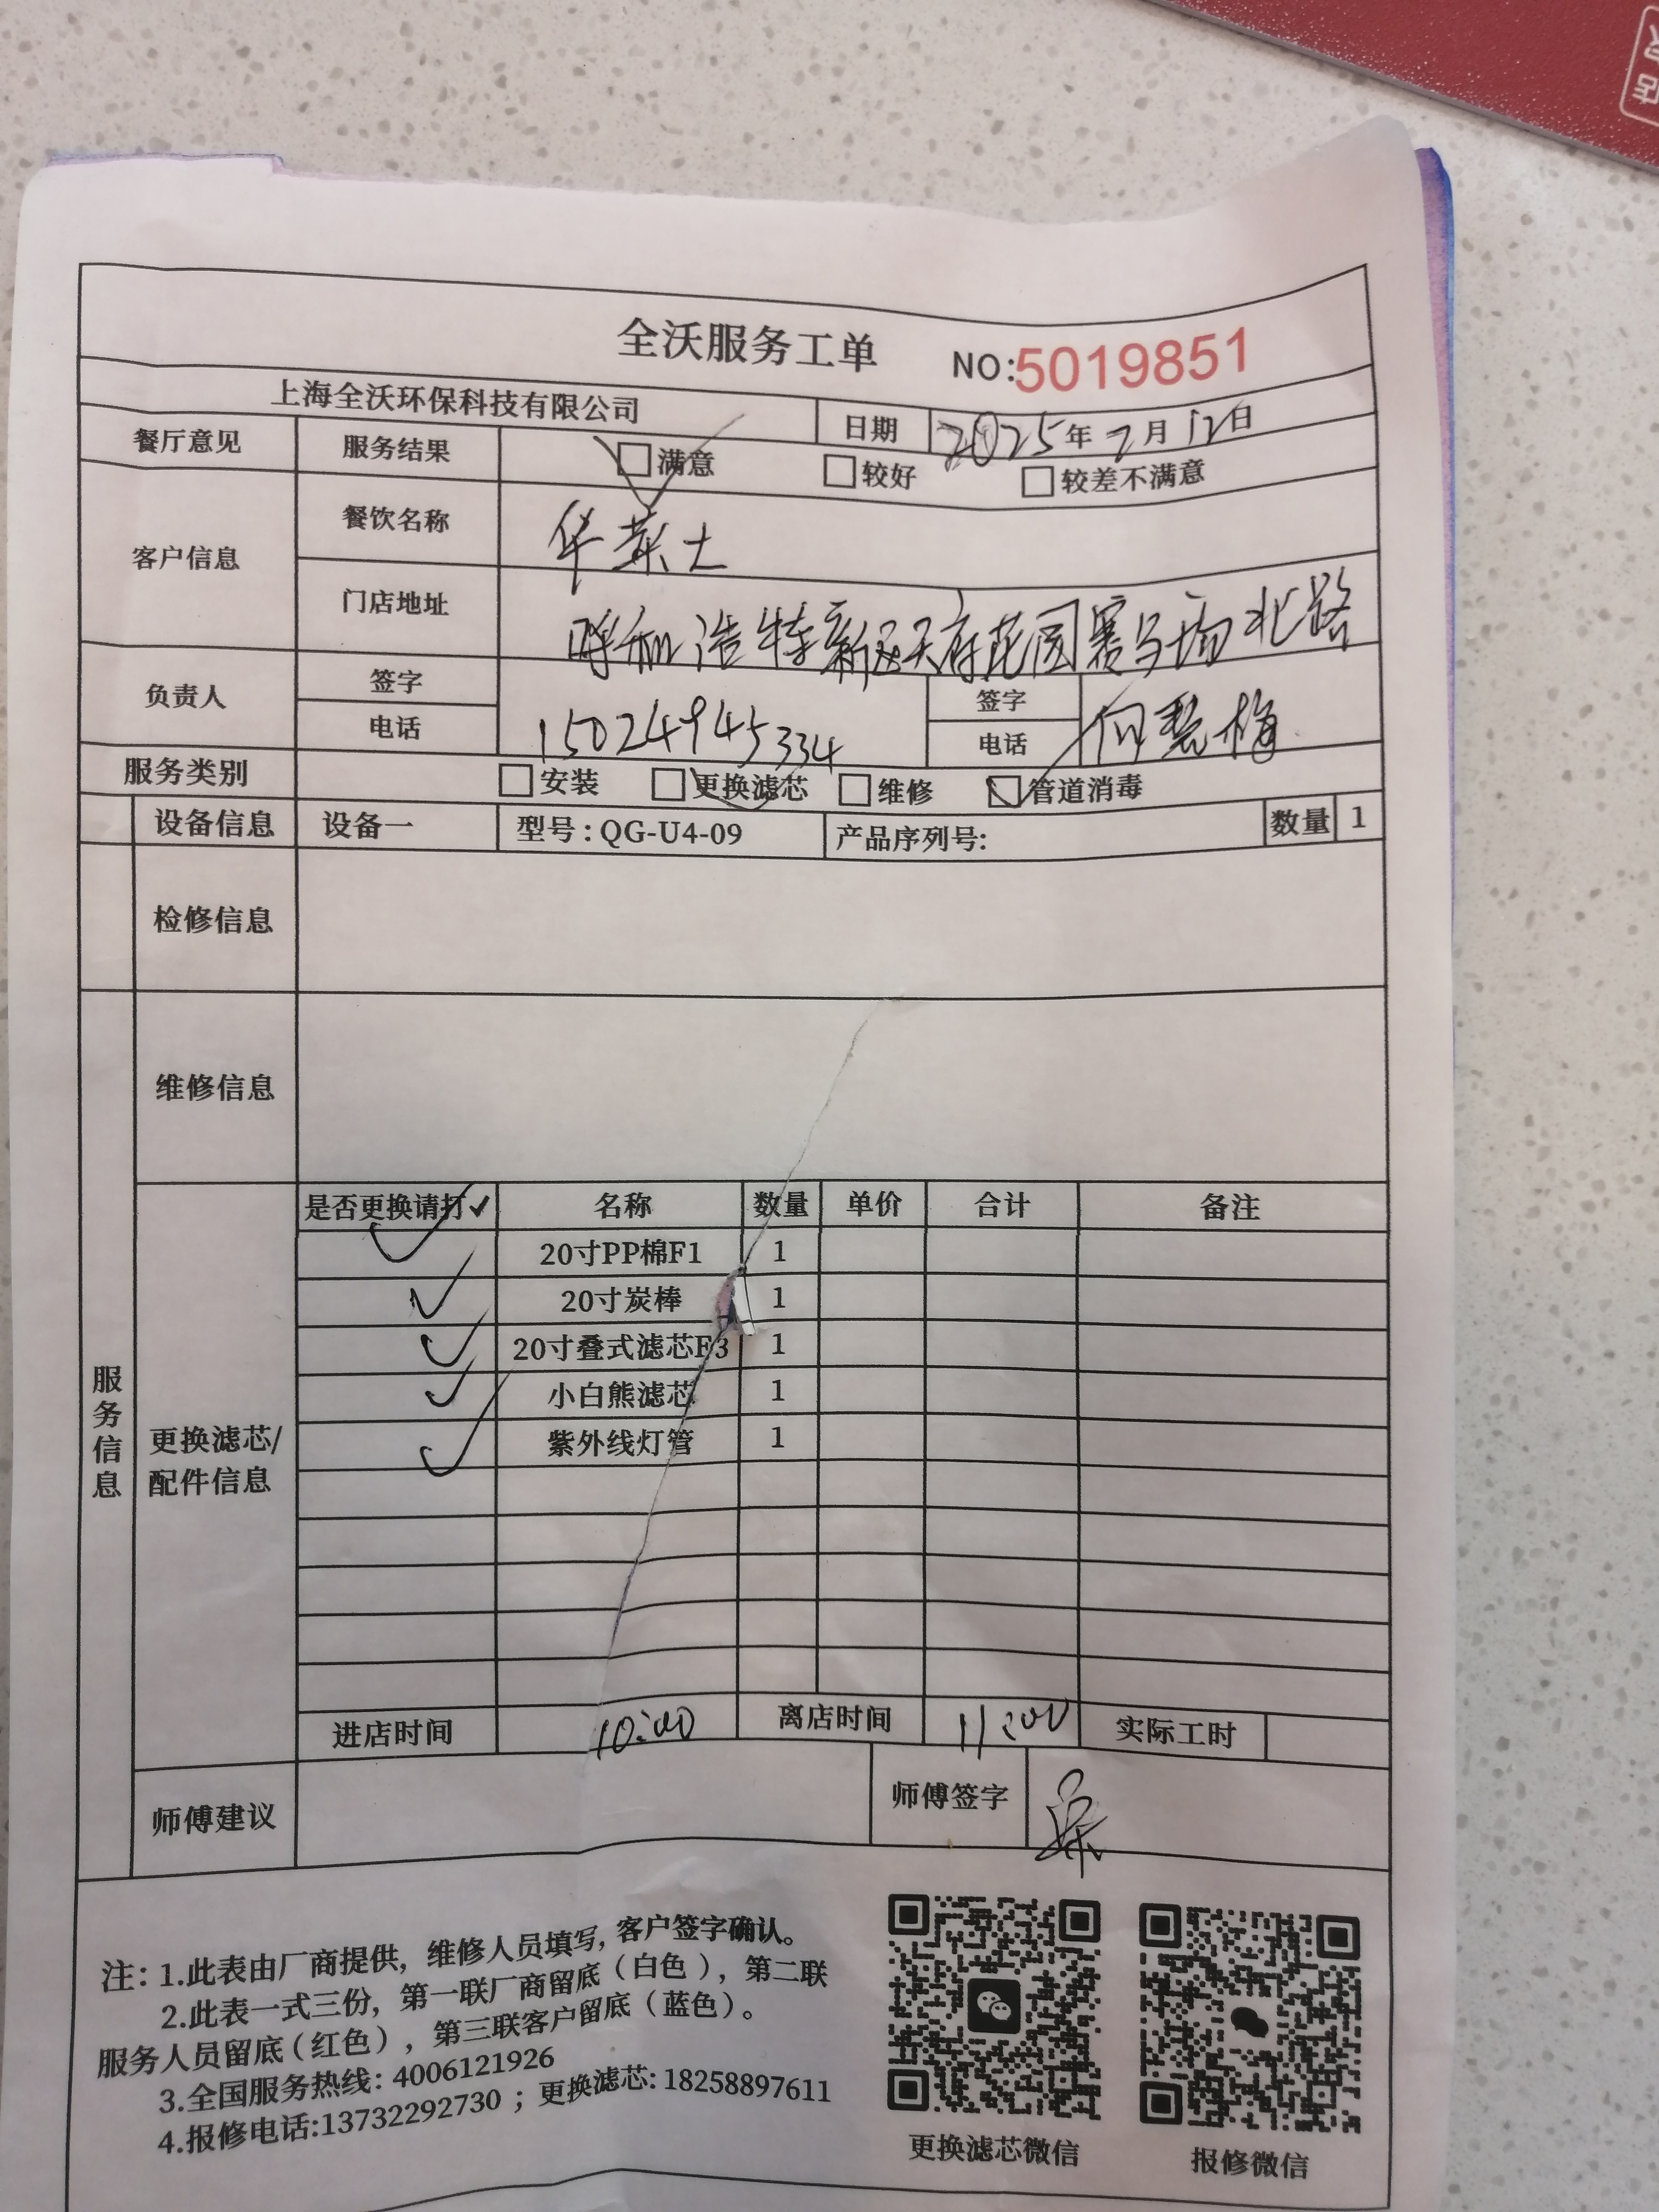 全沃服务工单 NO:5019851
上海全沃环保科技有限公司 日期 2025年2月12日
餐厅意见 服务结果 满意 较好 较差不满意
客户信息 餐饮名称 华莱士
门店地址 呼和浩特新区天府花园赛马场北路
负责人 签字 签字
电话 15024945334 电话 何慧梅
服务类别 安装 更换滤芯 维修 管道消毒
设备信息 设备一 型号:QG-U4-09 产品序列号: 数量 1
检修信息
维修信息
服务信息
更换滤芯/配件信息
是否更换请打✓ 名称 数量 单价 合计 备注
✓ 20寸PP棉F1 1
✓ 20寸炭棒 1
✓ 20寸叠式滤芯F3 1
✓ 小白熊滤芯 1
✓ 紫外线灯管 1
进店时间 10:00 离店时间 11:00 实际工时
师傅建议 师傅签字
注:1.此表由厂商提供,维修人员填写,客户签字确认。
2.此表一式三份,第一联厂商留底(白色),第二联
服务人员留底(红色),第三联客户留底(蓝色)。
3.全国服务热线:4006121926
4.报修电话:13732292730;更换滤芯:18258897611
更换滤芯微信 报修微信